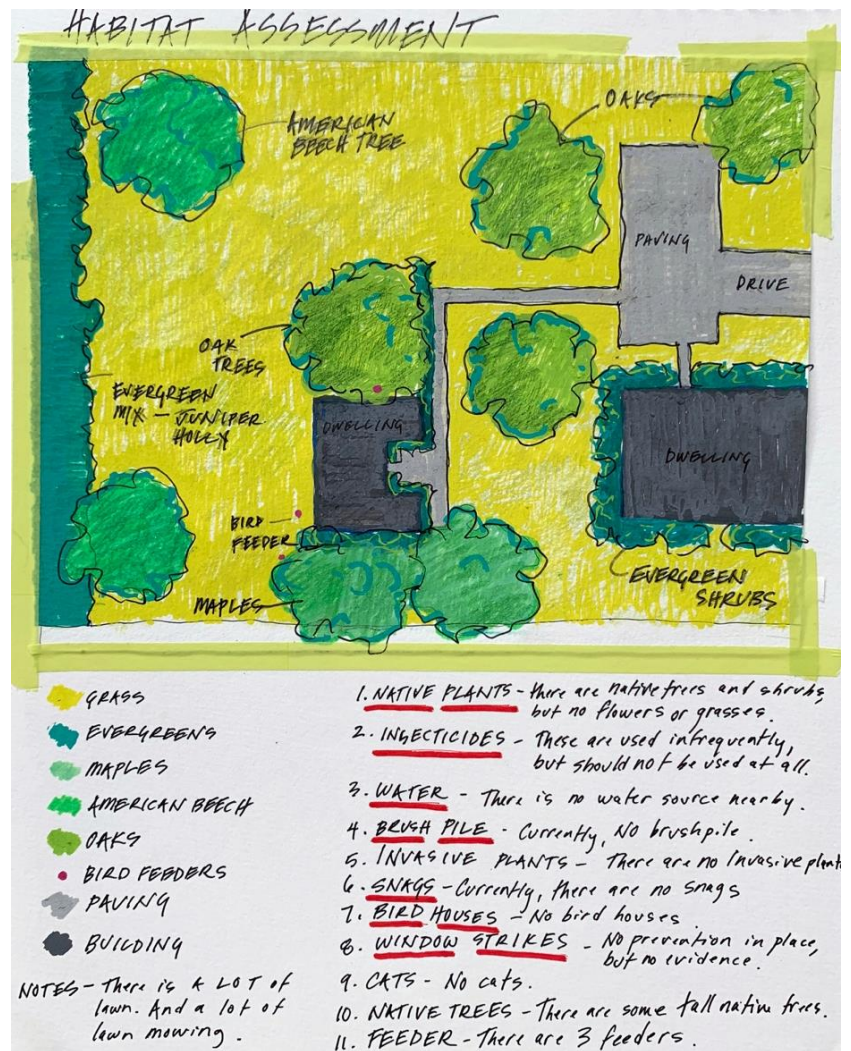 HABITAT ASSESSMENT
AMERICAN
BEECH TREE
OAKS
PAVING
DRIVE
OAK
TREES
EVERGREEN
MIX - JUNIPER
HOLLY
DWELLING
DWELLING
BIRD
FEEDER
MAPLES
EVERGREEN
SHRUBS
GRASS
EVERGREENS
MAPLES
AMERICAN BEECH
OAKS
BIRD FEEDERS
PAVING
BUILDING
NOTES - There is A LOT of
lawn. And a lot of
lawn mowing.
1. NATIVE PLANTS - there are native trees and shrubs,
but no flowers or grasses.
2. INSECTICIDES - These are used infrequently,
but should not be used at all.
3. WATER - There is no water source nearby.
4. BRUSH PILE - Currently, No brushpile.
5. INVASIVE PLANTS - There are no Invasive plants
6. SNAGS - Currently, there are no snags
7. BIRD HOUSES - No bird houses
8. WINDOW STRIKES - No prevention in place,
but no evidence.
9. CATS - No cats.
10. NATIVE TREES - There are some tall native trees.
11. FEEDER - There are 3 feeders.